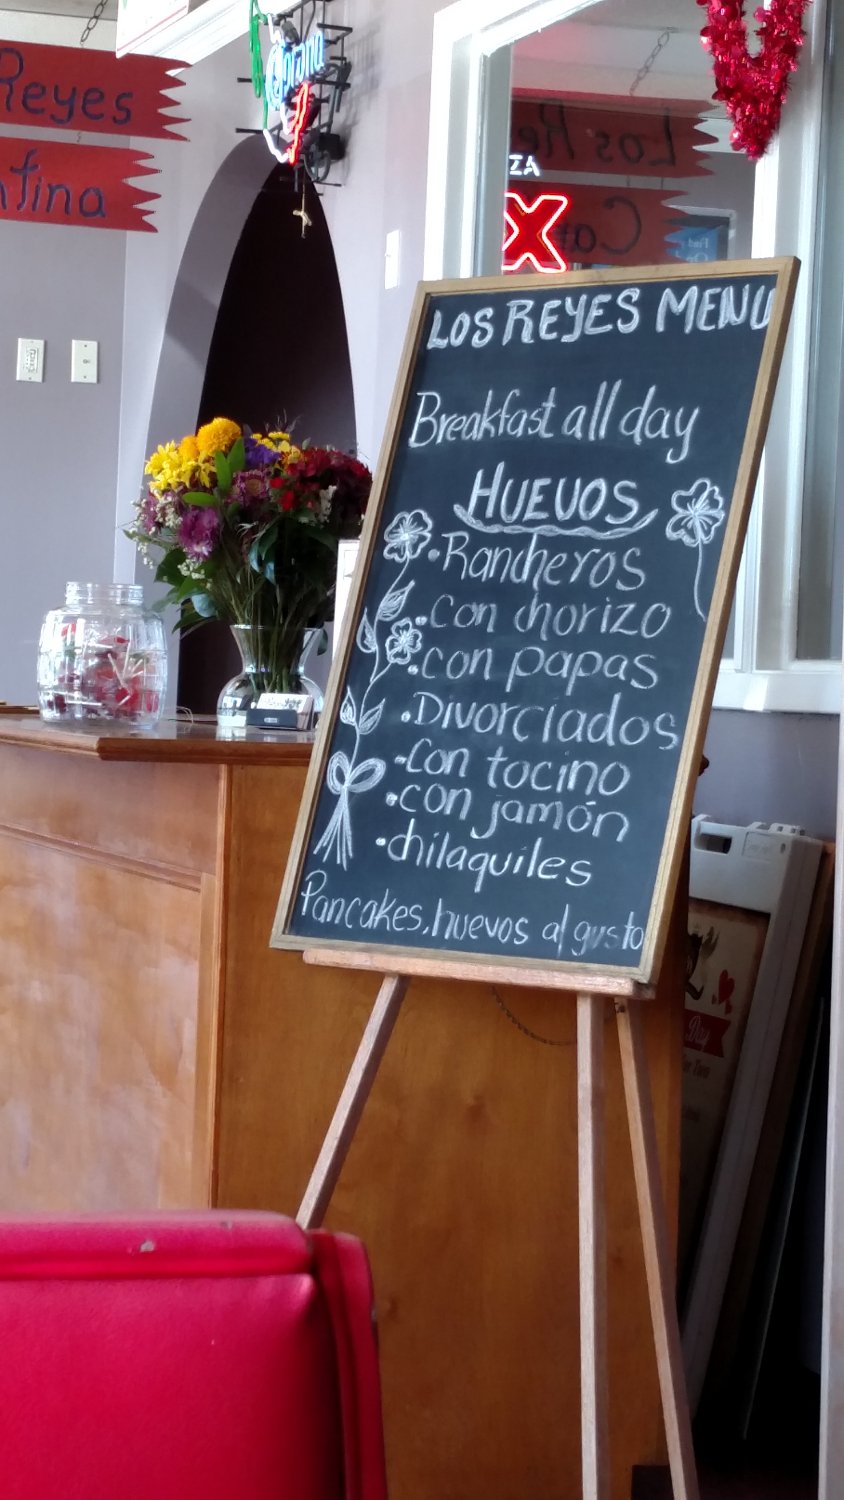 Reyes
Corona
LOS REYES MENU
Breakfast all day
HUEVOS
• Rancheros
• con chorizo
• con papas
• Divorciados
• con tocino
• con jamón
• chilaquiles
Pancakes, huevos al gusto
Day